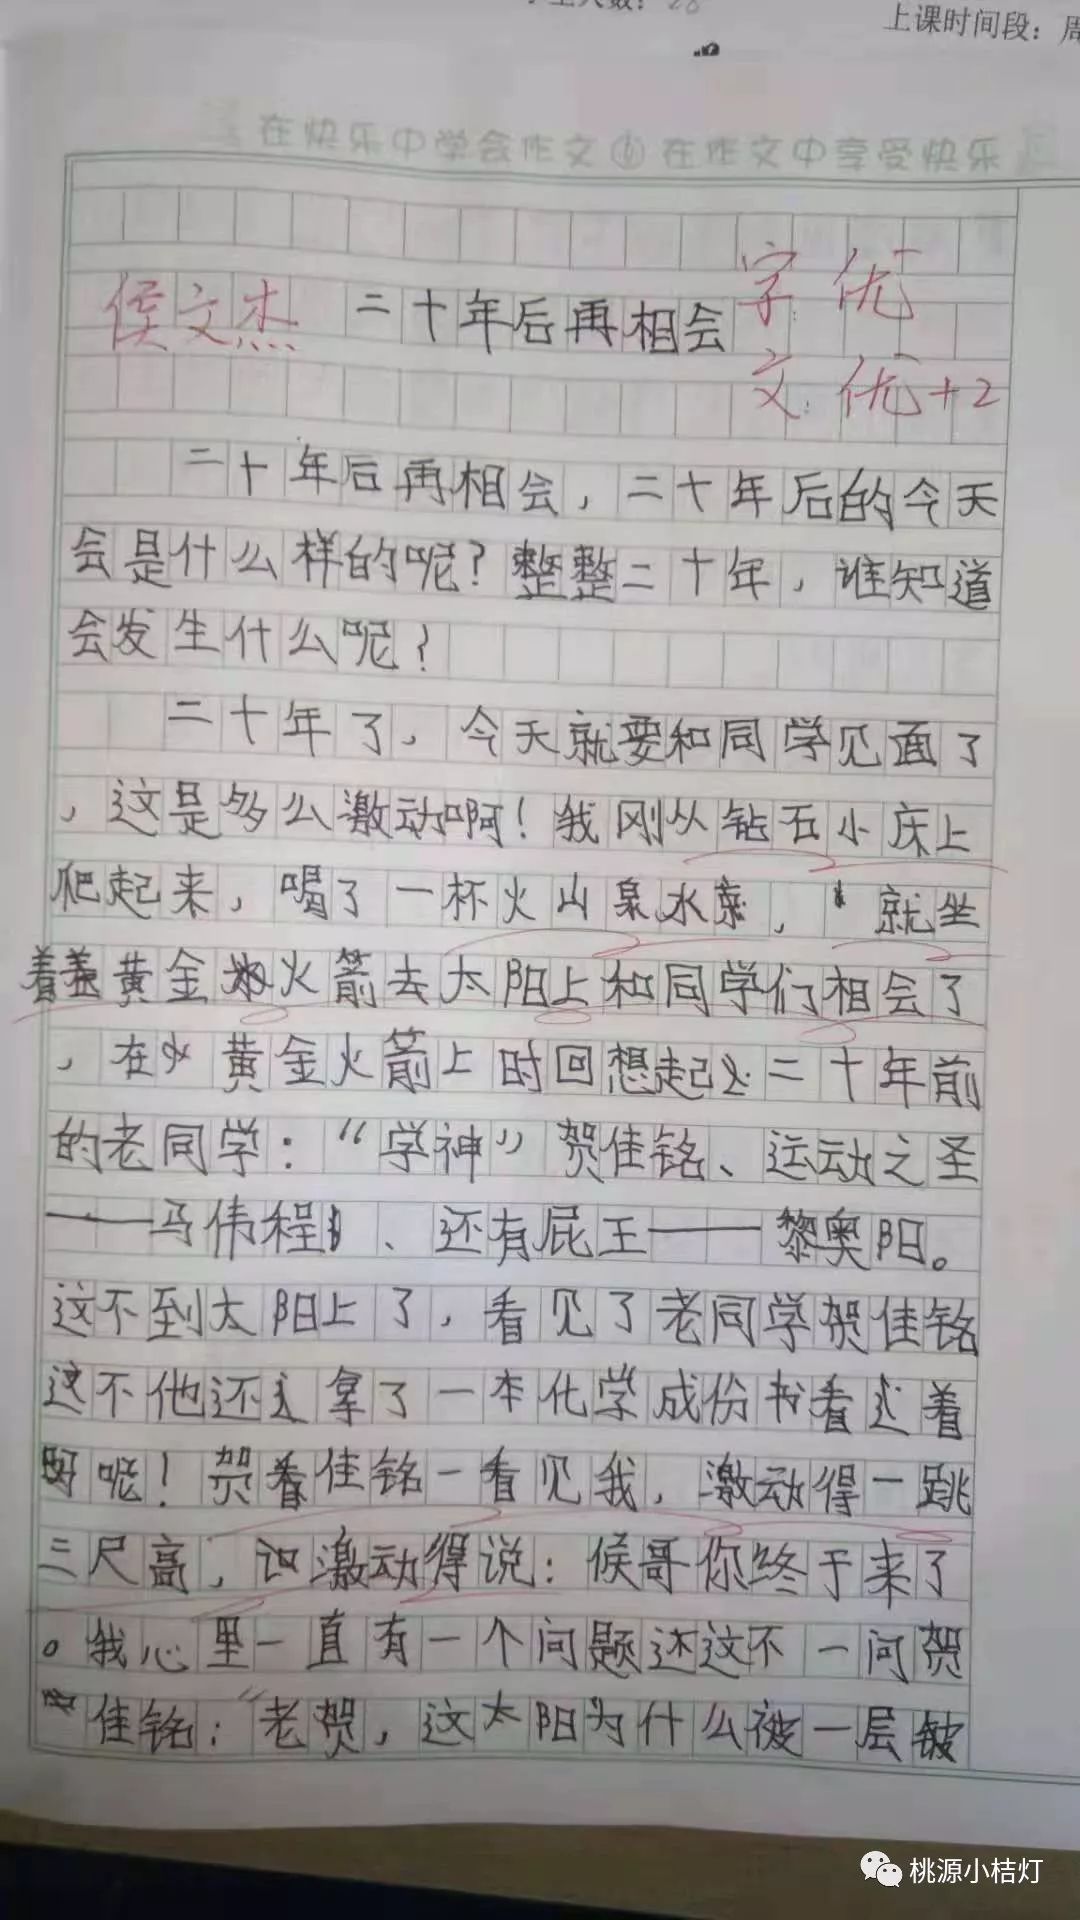 上课时间段：周
在快乐中学会作文 在作文中享受快乐
侯文杰 二十年后再相会 字：优
文：优+2
二十年后再相会，二十年后的今天
会是什么样的呢？整整二十年，谁知道
会发生什么呢？
二十年了，今天就要和同学见面了
，这是多么激动啊！我刚从钻石小床上
爬起来，喝了一杯火山泉水，就坐
着黄金火箭去太阳上和同学们相会了
，在黄金火箭上时回想起二十年前
的老同学：“学神”贺佳铭、运动之圣
——马伟程、还有屁王——黎奥阳。
这不到太阳上了，看见了老同学贺佳铭
这不他还拿了一本化学成份书看着
呢！贺佳铭一看见我，激动得一跳
三尺高，激动得说：候哥你终于来了
。我心里一直有一个问题还这不一问贺
佳铭：“老贺，这太阳为什么被一层铍
桃源小桔灯